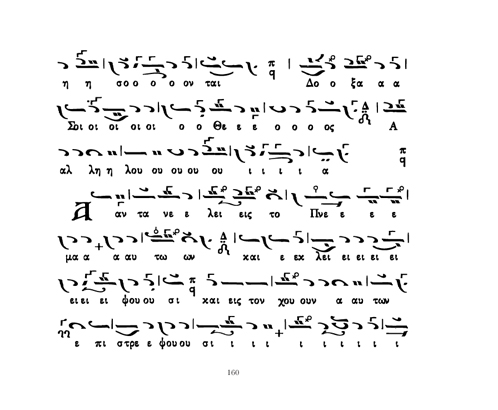 η η σο ο ο ον ται π q Δο ο ξα α α
Σοι οι οι οι οι ο ο Θε ε ε ο ο ο ος Δ Α
αλ λη η λου ου ου ου ου ι ι ι ι α π q
Α αν τα νε ε λει εις το Πνε ε ε ε
μα α α αυ τω ων Δ και ε εκ λει ει ει ει ει
ει ει ει ψου ου σι π q και εις τον χου ουν α αυ των
ε πι στρε ε ψου ου σι ι ι ι ι ι ι ι ι
160